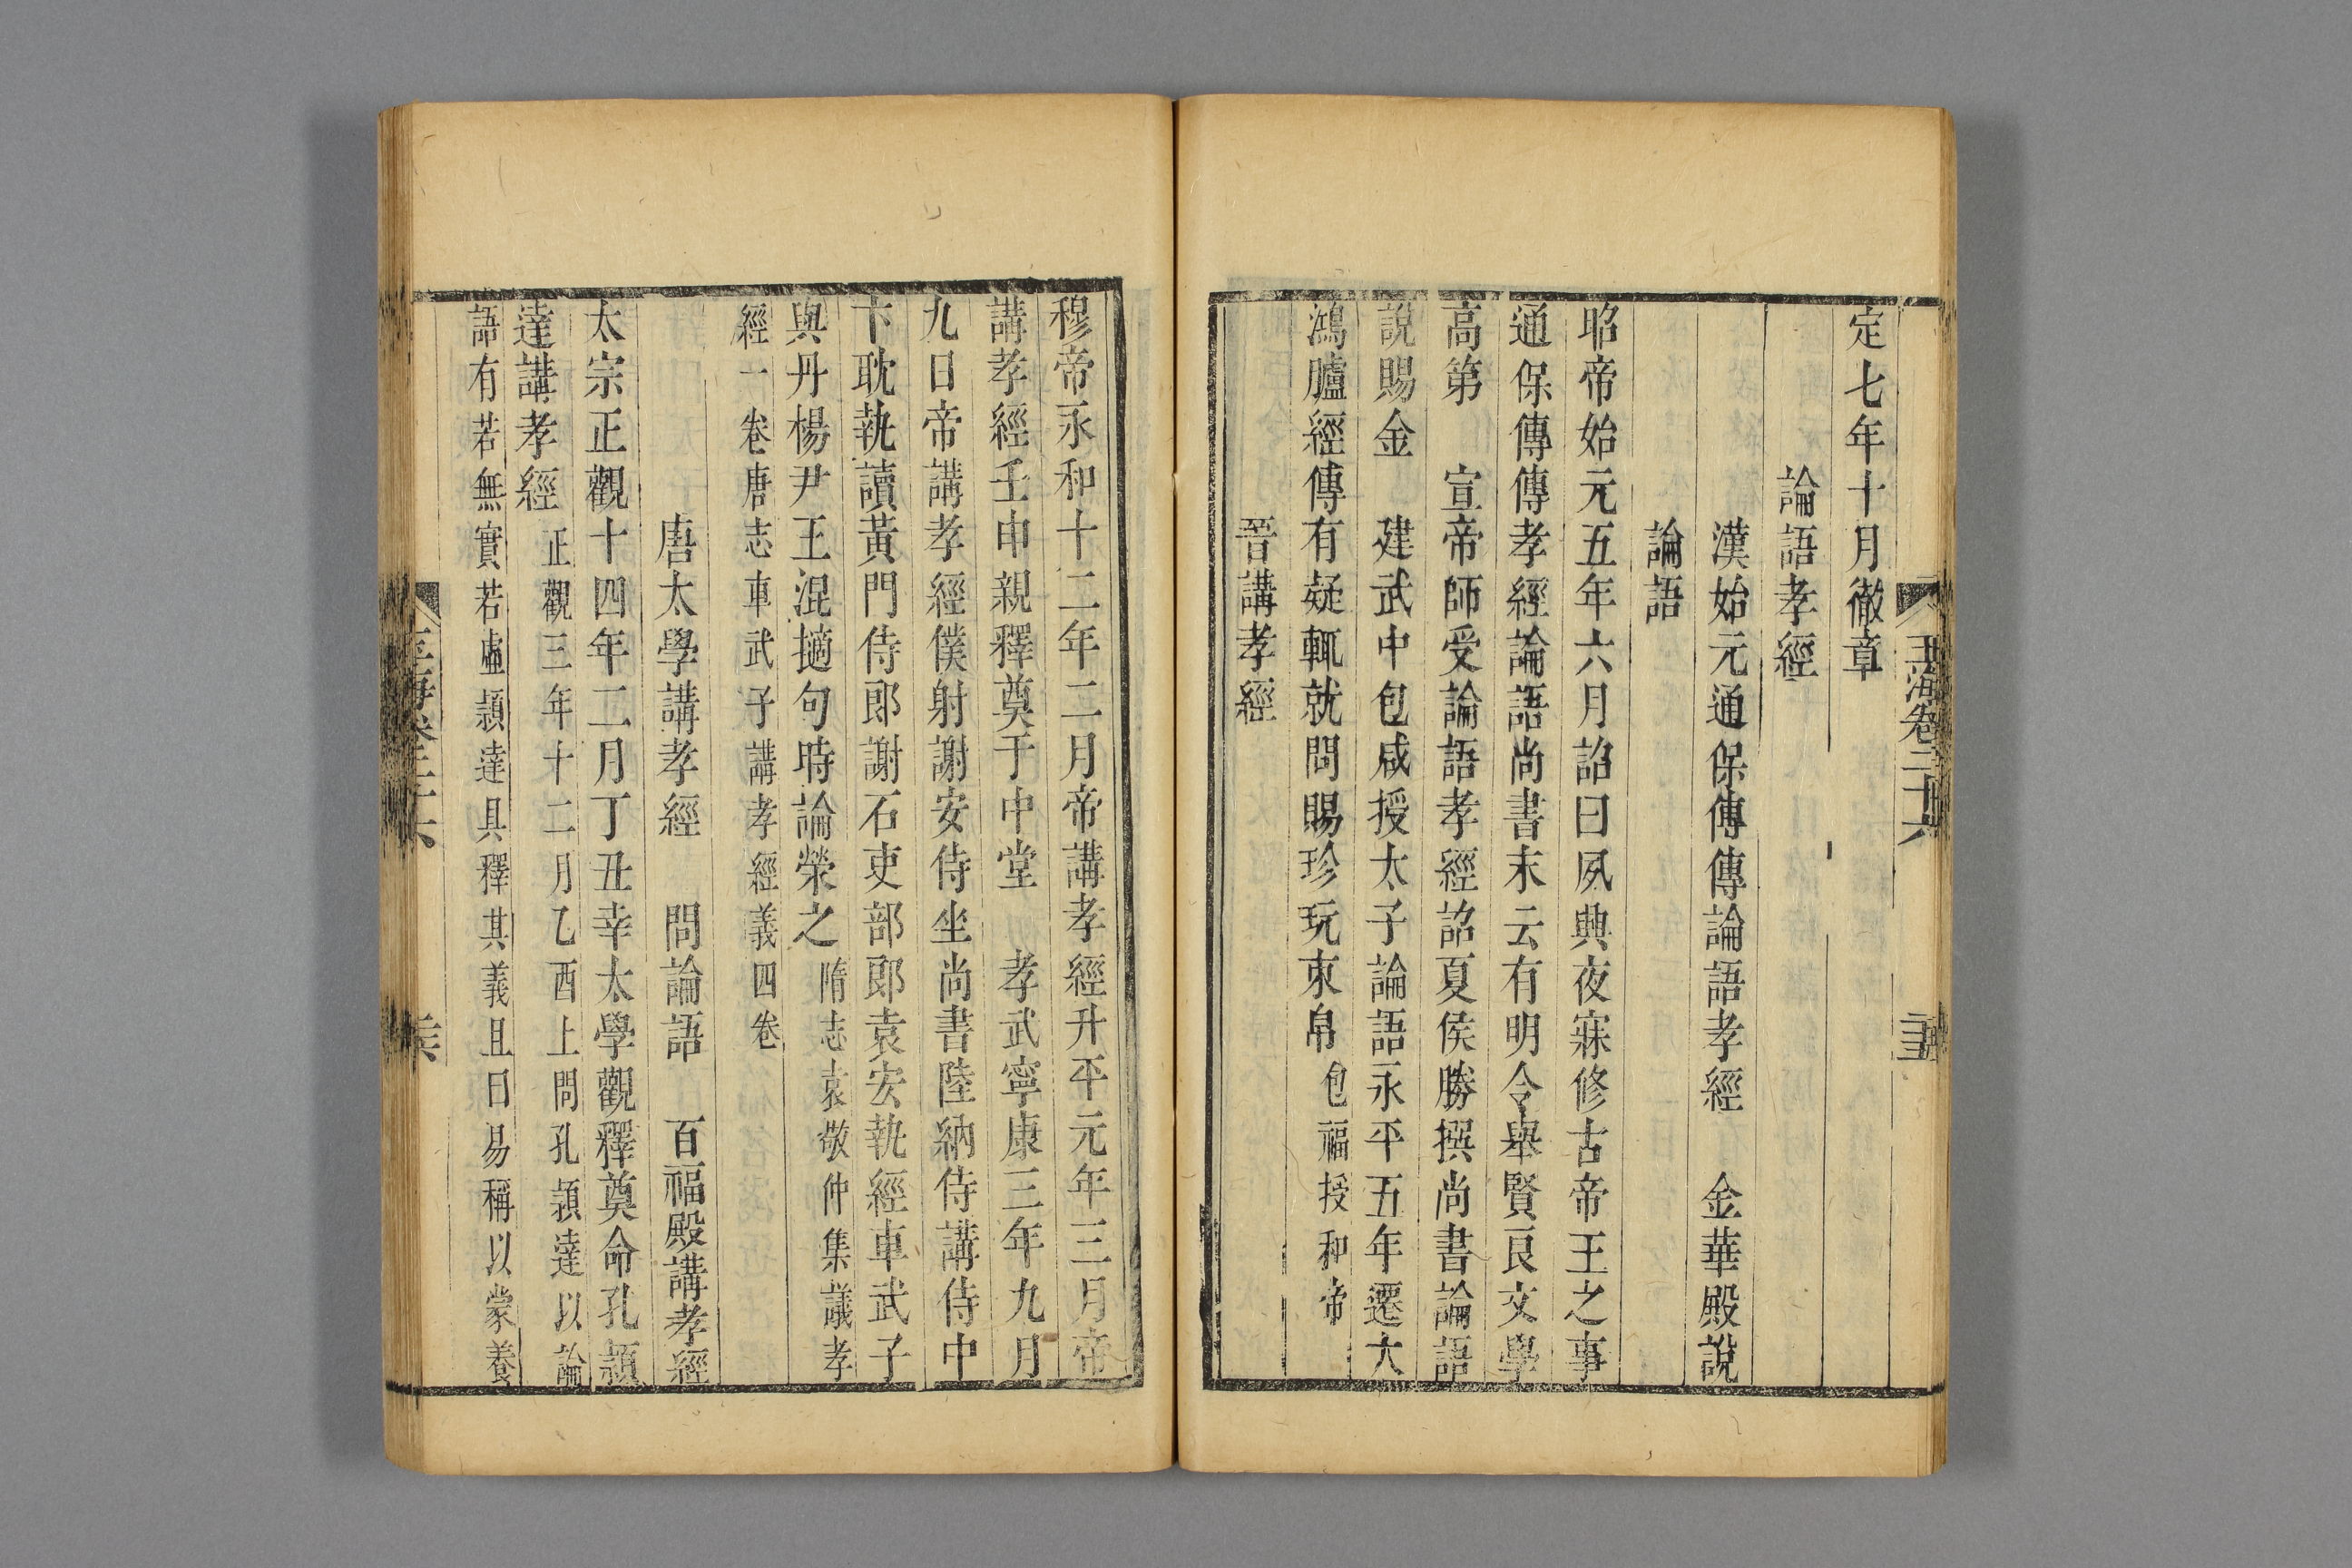 玉海卷二十六
定七年十月徹章
論語孝經
漢始元通保傅傳論語孝經　金華殿說
論語
昭帝始元五年六月詔曰夙興夜寐修古帝王之事
通保傅傳孝經論語尚書未云有明令舉賢良文學
高第　宣帝師受論語孝經詔夏侯勝撰尚書論語
說賜金　建武中包咸授太子論語永平五年遷大
鴻臚經傳有疑輒就問賜珍玩束帛包福授和帝
晉講孝經
穆帝永和十二年二月帝講孝經升平元年三月帝
講孝經壬申親釋奠于中堂　孝武寧康三年九月
九日帝講孝經僕射謝安侍坐尚書陸納侍講侍中
卞耽執讀黃門侍郎謝石吏部郎袁安執經車武子
與丹楊尹王混擿句時論榮之隋志袁敬仲集議孝
經一卷唐志車武子講孝經義四卷
唐太學講孝經　問論語　百福殿講孝經
太宗正觀十四年二月丁丑幸太學觀釋奠命孔穎
達講孝經正觀三年十二月乙酉上問孔穎達以論
語有若無實若虛穎達具釋其義且曰易稱以蒙養